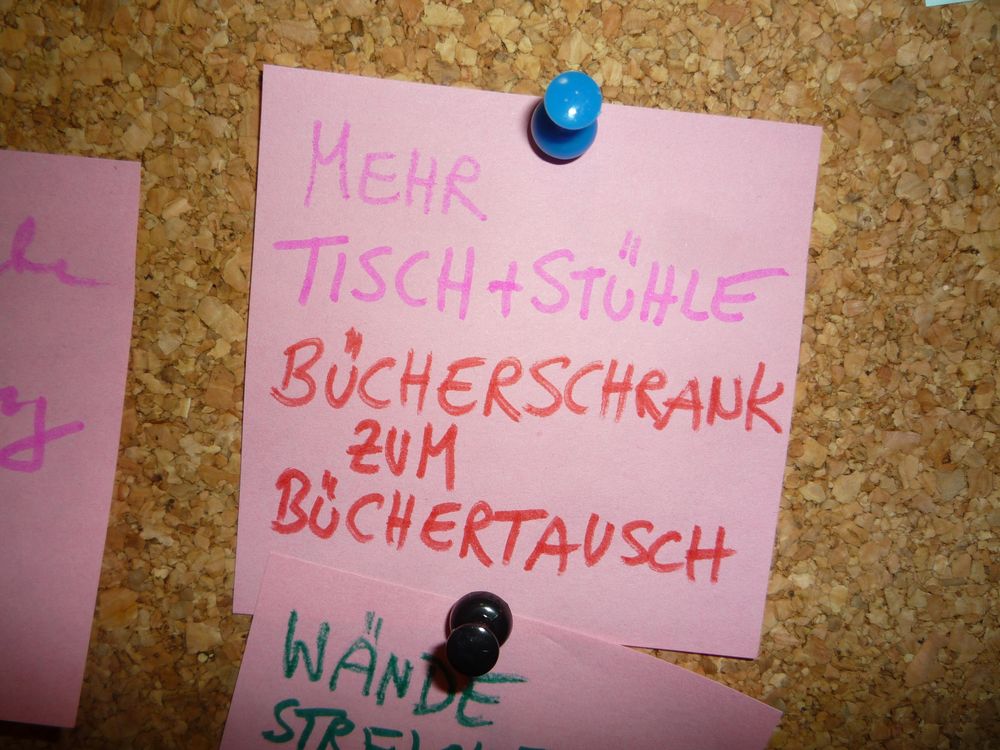 MEHR
TISCH + STÜHLE
BÜCHERSCHRANK
ZUM
BÜCHERTAUSCH
WÄNDE